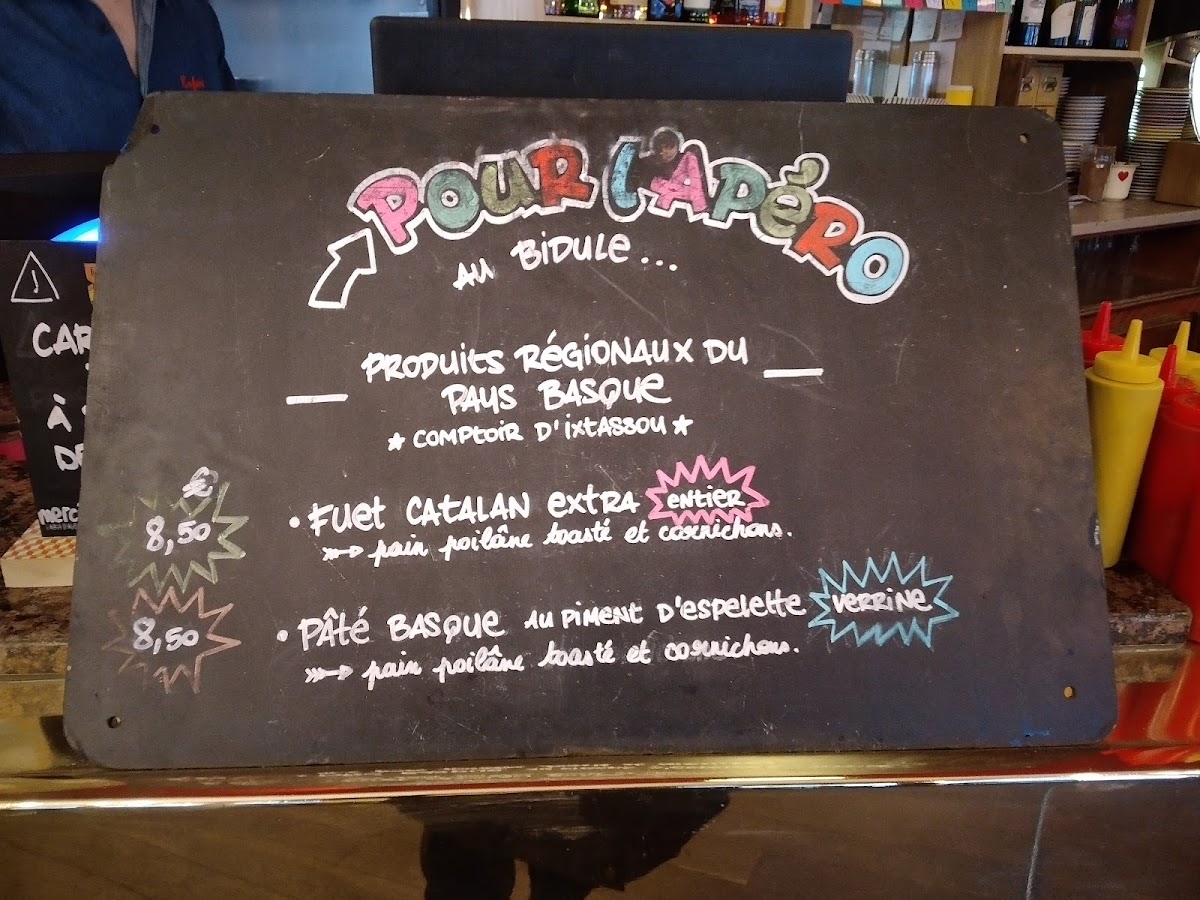 POUR L'APÉRO
AU BIDULE...
PRODUITS RÉGIONAUX DU
PAYS BASQUE
★ COMPTOIR D'IXTASSOU ★
€
8,50
• FUET CATALAN EXTRA ENTIER
pain poilâne toasté et cornichons.
8,50
• PÂTÉ BASQUE AU PIMENT D'ESPELETTE VERRINE
pain poilâne toasté et cornichons.
À
merci